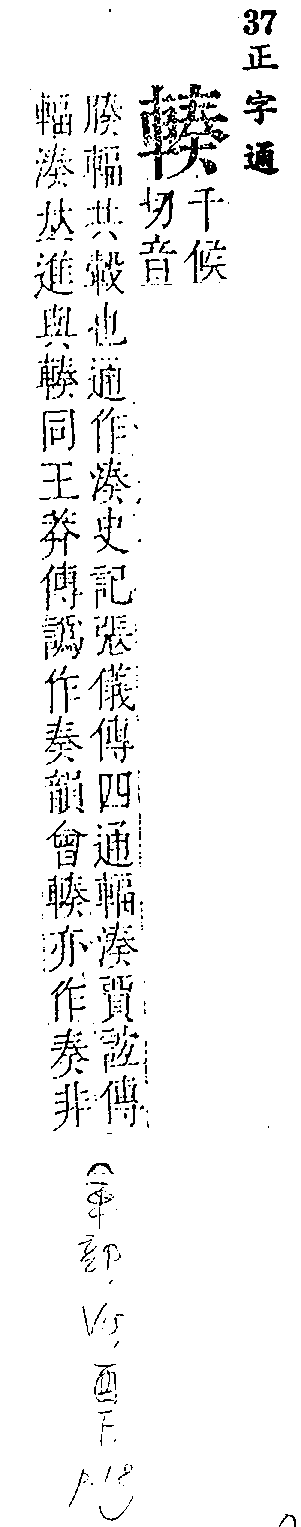 37正字通
輳 千候
切音
腠輻共轂也通作湊史記張儀傳四通輻湊賈誼傳
輻湊𠀤進與輳同王莽傳譌作奏韻會輳亦作奏非
(車部, V15, 酉下 p.18